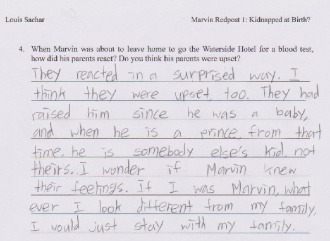 Louis Sachar Marvin Redpost 1: Kidnapped at Birth?
4. When Marvin was about to leave home to go the Waterside Hotel for a blood test,
how did his parents react? Do you think his parents were upset?
They reacted in a surprised way. I
think they were upset, too. They had
raised him since he was a baby,
and when he is a prince, from that
time, he is somebody else's kid, not
theirs. I wonder if Marvin knew
their feelings. If I was Marvin, what
ever I look different from my family,
I would just stay with my family.